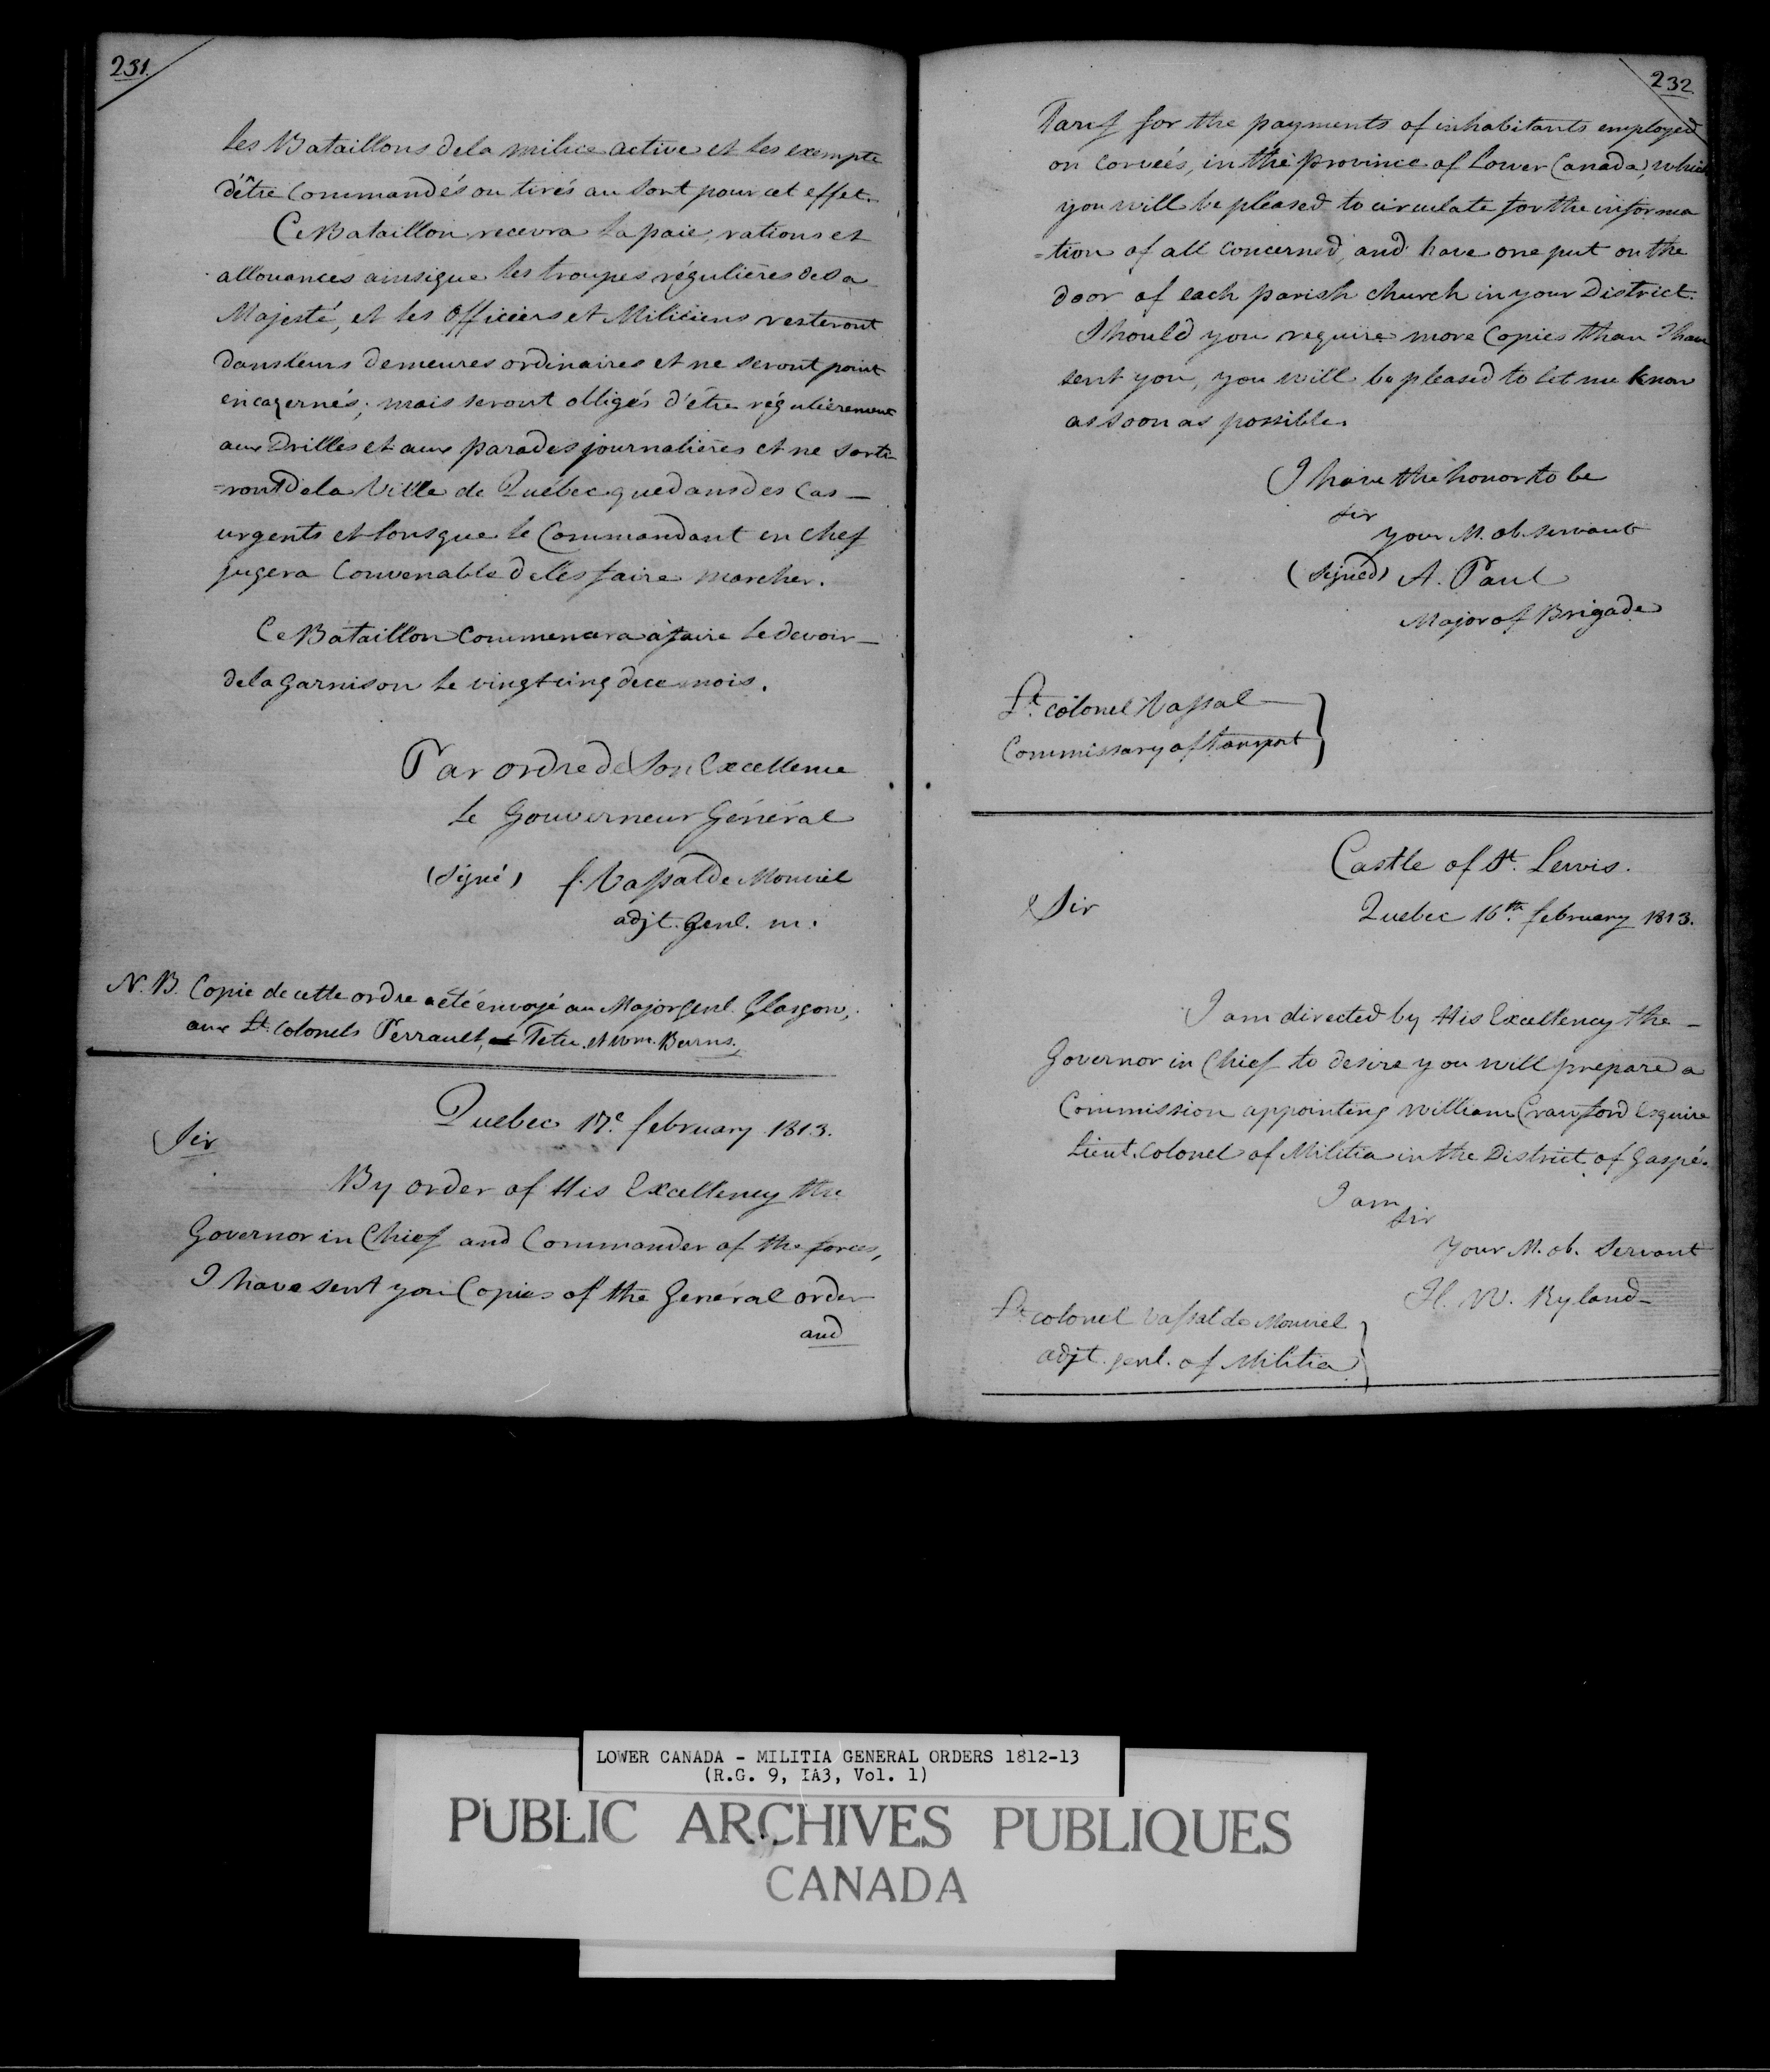 231.
les Bataillons de la milice active et les exempte
d'être commandés ou tirés au sort pour cet effet.
Ce Bataillon recevra la paie, rations et
allouances ainsi que les troupes régulières de sa
Majesté, et les Officiers et Miliciens resteront
dans leurs demeures ordinaires et ne seront point
encazernés; mais seront obligés d'être régulièrement
aux Drilles et aux parades journalières et ne sorti-
=ront de la Ville de Québec que dans des cas —
urgents et lorsque le Commandant en chef
jugera convenable de les faire marcher.
Ce Bataillon commencera à faire le devoir —
de la Garnison le vingt cinq de ce mois.
Par ordre de Son Excellence
le Gouverneur Général
(Signé) f. Vassal de Monviel
adjt. Genl. m.
N.B. Copie de cette ordre a été envoyé au Major Genl. Glasgow,
aux Lt. Colonels Perrault, Tetu et Wm. Burns.
Quebec 17e. february 1813.
Sir
By order of His Excellency the
Governor in Chief and Commander of the forces,
I have sent you Copies of the General order
and
232
Tarif for the payments of inhabitants employed
on corveés, in the province of Lower Canada, which
you will be pleased to circulate for the informa
=tion of all concerned, and have one put on the
door of each parish church in your District.
Should you require more Copies than I have
sent you, you will be pleased to let me know
as soon as possible.
I have the honor to be
Sir
your M. ob. servant
(signed) A. Paul
Major of Brigade
Lt. colonel Vassal —
Commissary of transport
Castle of St. Lewis.
Quebec 16th. february 1813.
Sir
I am directed by His Excellency the —
Governor in Chief to desire you will prepare a
Commission appointing William Crawford Esquire
Lieut. Colonel of Militia in the District of Gaspé.
I am
Sir
Your M. ob. Servant
H. W. Ryland —
Lt. colonel Vassal de Monviel
adjt. genl. of Militia
LOWER CANADA - MILITIA GENERAL ORDERS 1812-13
(R.G. 9, IA3, Vol. 1)
PUBLIC ARCHIVES PUBLIQUES
CANADA